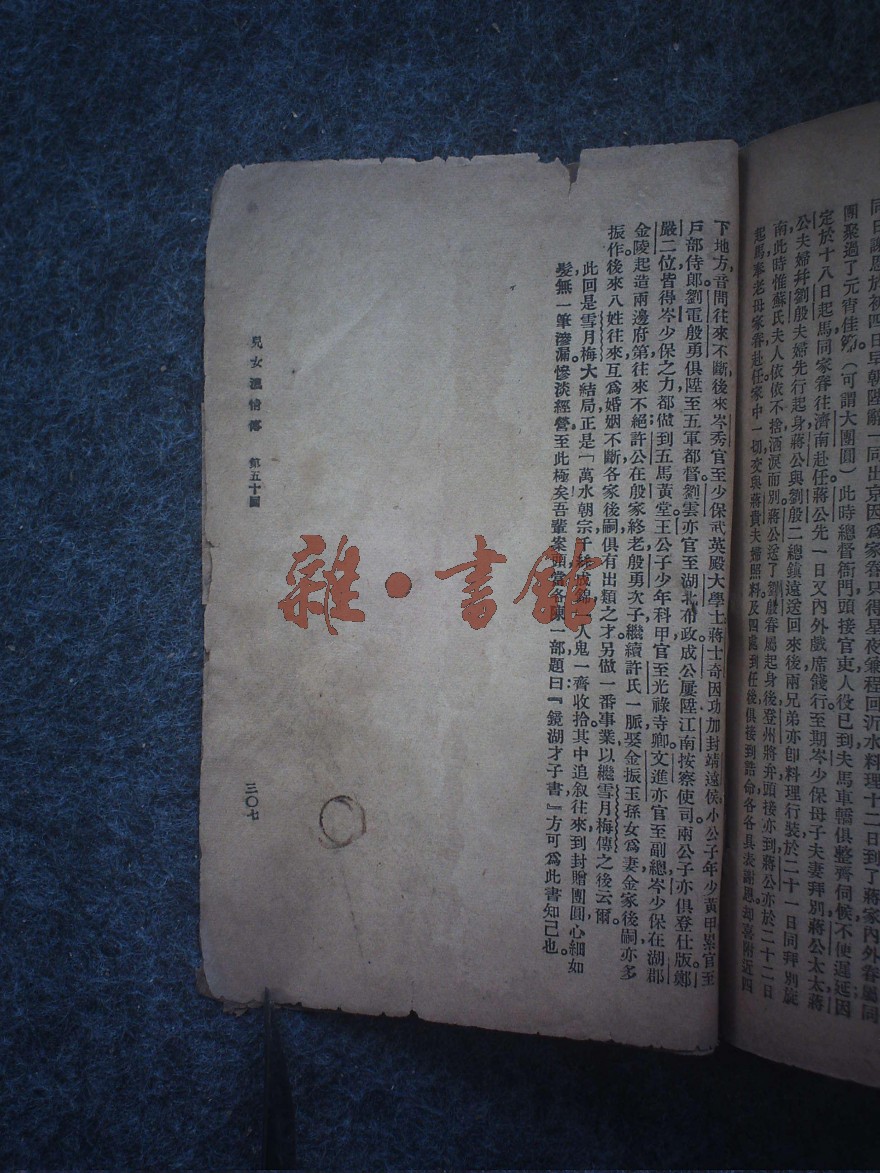 同日謝恩於初四日早朝陛辭一同出京因爲家眷只得星夜兼程回沂水料理十二日到了蔣家內外眷屬同
團聚過了元宵佳節。(可謂大團圓)此時總督衙門頭接官吏人役已到夫馬車轎俱整齊伺候不便遲延因
定於十八日起馬同家眷往濟南赴任。蔣公先一日又內外戲席餞行至期岑少保母子夫妻拜別蔣公太太蔣
公夫婦幷劉殷夫婦先行起身蔣公與劉殷二總鎮遠送回來後兩兄弟亦卽料理行裝於二十一日同拜別旋
南,此時惟蘇氏夫人依依不捨洒淚而別。蔣公送了劉殷眷屬起身後登州將弁頭接亦到蔣公亦於二十二日
起馬奉老母家眷赴任。家中一切交與蔣貴夫婦照料及四處到任後俱接到誥命各各具表謝恩却喜附近四
下地方,音問往來不斷,後來岑秀官至少保武英殿大學士,蔣士奇因功加封靖遠侯,小公子年少黃甲,累官至
戶部侍郎,劉電殷勇俱陞至五軍都督劉雲亦官至湖北布政。成公屢陞江南按察使司,兩公子亦俱登仕版。鄭
嚴二位皆得岑少保之力,都做到五馬黃堂。王公子少年科甲,官至光祿寺卿。文進亦官至副總岑少保在湖郡
金陵起造兩邊府第,往來不絕;許公在殷家終老,殷勇次子繼續許氏一脈,娶金振玉孫女爲妻金家後嗣亦多
振作。後來八姓往來,互爲婚姻不斷各家後嗣俱有出類之才,另做一番事業以繼雪月梅傳之後云爾。
此回是雪月梅大結局,正是「萬水朝宗千絲成錦,一人鬼一齊收拾。其中追叙往來,到封贈團圓,心細如
髮,無一筆滲漏。慘淡經營,至此極矣!吾輩案頭,當各陳一部,題曰:『鏡湖才子書』方可爲此書知己也。
兒女濃情傳 第五十回
三〇七
雜·書館